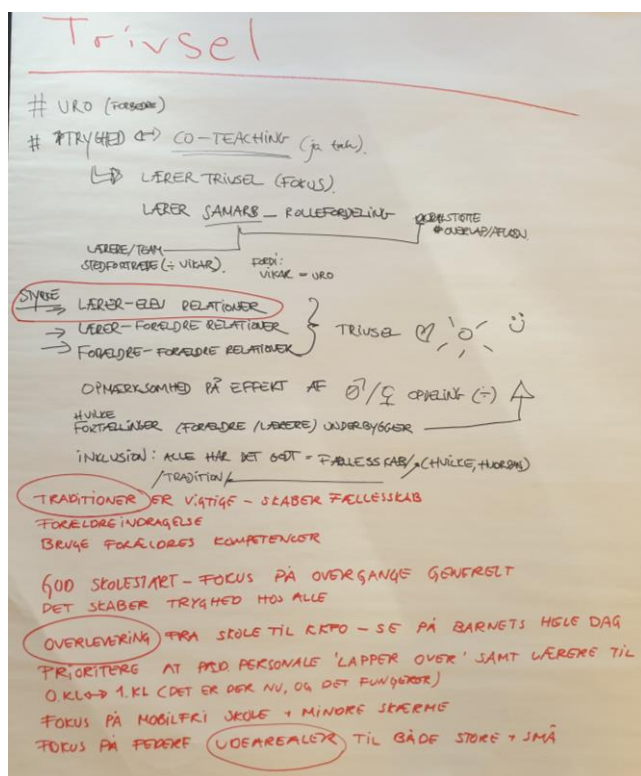 Trivsel
# URO (FORBEDRE)
# TRYGHED ↔ CO-TEACHING (ja tak).
↳ LÆRER TRIVSEL (FOKUS).
LÆRER SAMARB – ROLLEFORDELING
# OVERLAP/AFLØSN.
LÆRERE/TEAM
STEDFORTRÆDE (÷ VIKAR).
FORDI:
VIKAR = URO
STYRKE
→ LÆRER-ELEV RELATIONER
→ LÆRER-FORÆLDRE RELATIONER
→ FORÆLDRE-FORÆLDRE RELATIONER
} TRIVSEL ♡ ☼ ☺
OPMÆRKSOMHED PÅ EFFEKT AF ♂/♀ OPDELING (÷)
HVILKE
FORTÆLLINGER (FORÆLDRE/LÆRERE) UNDERBYGGER
INKLUSION: ALLE HAR DET GODT = FÆLLESSKAB/(HVILKE, HVORDAN)
/TRADITION/
TRADITIONER ER VIGTIGE – SKABER FÆLLESSKAB
FORÆLDREINDRAGELSE
BRUGE FORÆLDRES KOMPETENCER
GOD SKOLESTART – FOKUS PÅ OVERGANGE GENERELT
DET SKABER TRYGHED HOS ALLE
OVERLEVERING FRA SKOLE TIL KKFO – SE PÅ BARNETS HELE DAG
PRIORITERE AT PÆD. PERSONALE 'LAPPER OVER' SAMT LÆRERE TIL
0.KL ↔ 1.KL (DET ER DER NU, OG DET FUNGERER)
FOKUS PÅ MOBILFRI SKOLE + MINDRE SKÆRME
FOKUS PÅ FEDERE UDEAREALER TIL BÅDE STORE + SMÅ